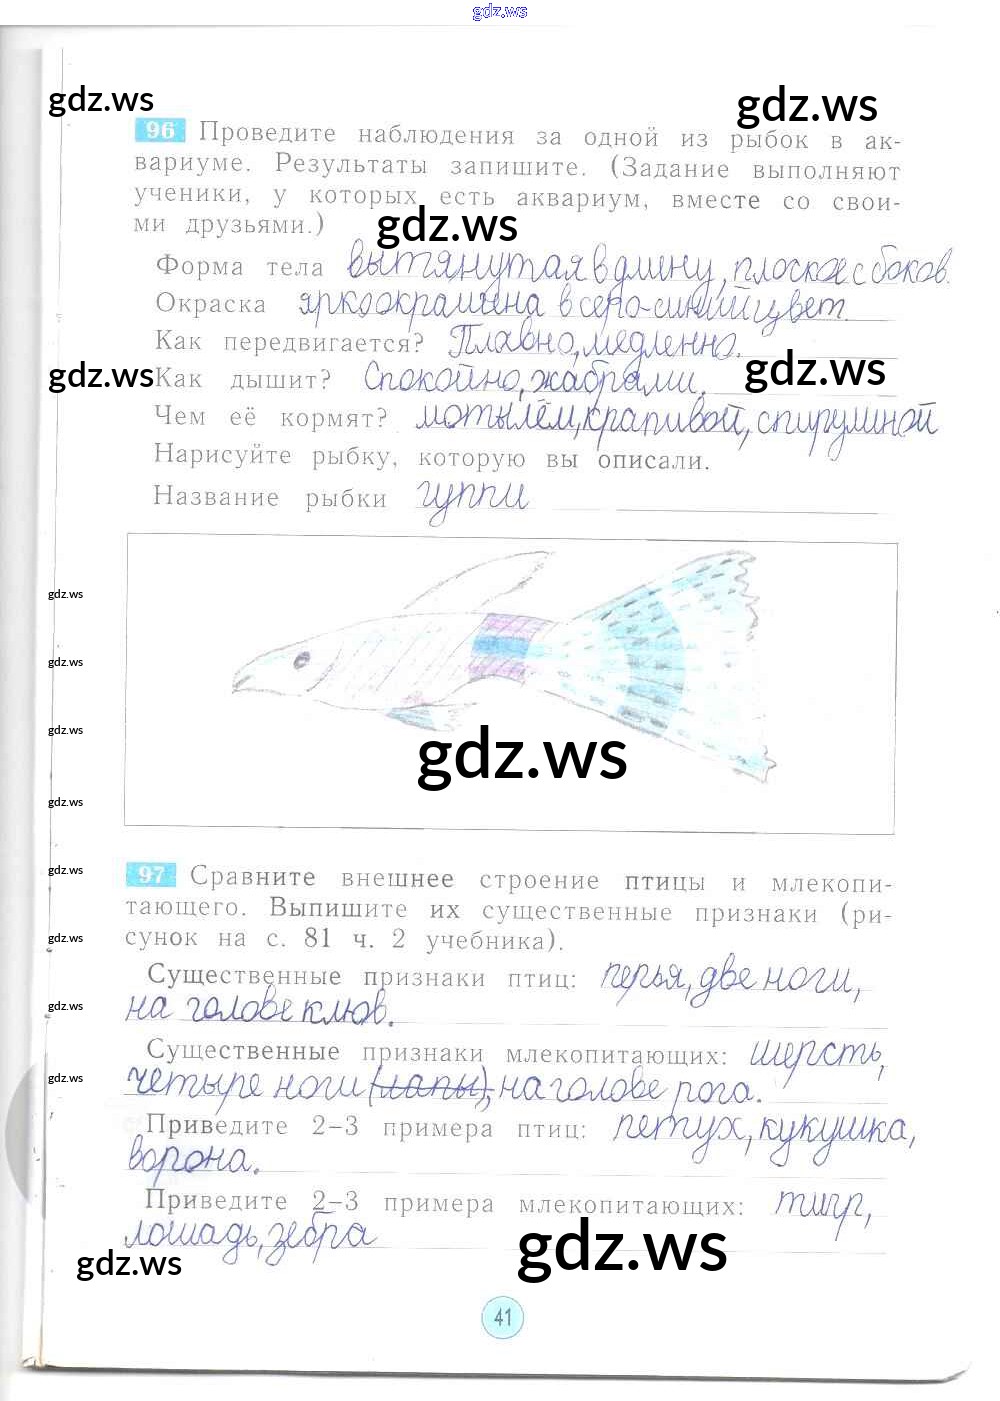 gdz.ws
gdz.ws
gdz.ws
96 Проведите наблюдения за одной из рыбок в ак-
вариуме. Результаты запишите. (Задание выполняют
ученики, у которых есть аквариум, вместе со свои-
ми друзьями.)
gdz.ws
Форма тела вытянутая в длину, плоское с боков.
Окраска ярко окрашена в серо-синий цвет.
Как передвигается? Плавно, медленно.
gdz.ws
gdz.ws
Как дышит? Спокойно, жабрами.
Чем её кормят? мотылём, крапивой, спирулиной
Нарисуйте рыбку, которую вы описали.
Название рыбки гуппи
gdz.ws
gdz.ws
gdz.ws
gdz.ws
gdz.ws
97 Сравните внешнее строение птицы и млекопи-
gdz.ws
тающего. Выпишите их существенные признаки (ри-
сунок на с. 81 ч. 2 учебника).
gdz.ws
Существенные признаки птиц: перья, две ноги,
на голове клюв.
gdz.ws
Существенные признаки млекопитающих: шерсть,
четыре ноги (лапы), на голове рога.
gdz.ws
Приведите 2–3 примера птиц: петух, кукушка,
ворона.
Приведите 2–3 примера млекопитающих: тигр,
лошадь, зебра
gdz.ws
gdz.ws
41